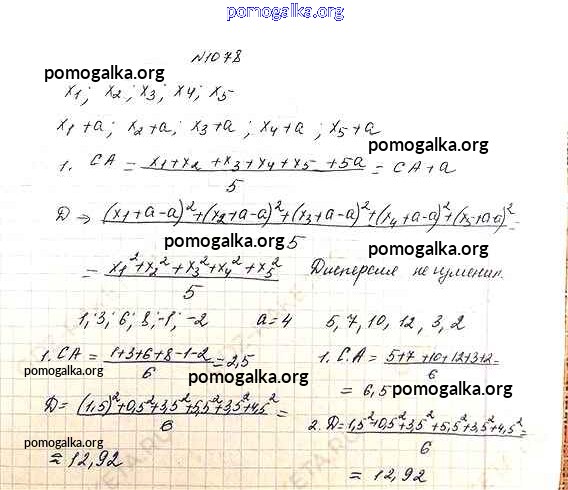 pomogalka.org
№1078
pomogalka.org
x1; x2; x3; x4; x5
x1+a; x2+a; x3+a; x4+a; x5+a
pomogalka.org
1. CA = x1+x2+x3+x4+x5+5a / 5 = CA+a
pomogalka.org
D → (x1+a-a)²+(x2+a-a)²+(x3+a-a)²+(x4+a-a)²+(x5+a-a)² / 5 =
pomogalka.org
pomogalka.org
= x1²+x2²+x3²+x4²+x5² / 5 Дисперсия не изменин.
pomogalka.org
1; 3; 6; 8; -1; -2 a=4 5, 7, 10, 12, 3, 2
1. CA = 1+3+6+8-1-2 / 6 = 2,5 1. C.A = 5+7+10+12+3+2 / 6 =
pomogalka.org
pomogalka.org
= 6,5
pomogalka.org
D = (1,5)²+0,5²+3,5²+5,5²+3,5²+4,5² / 6 = 2. D = 1,5²+0,5²+3,5²+5,5²+3,5²+4,5² / 6 =
pomogalka.org
≈ 12,92 = 12,92
pomogalka.org